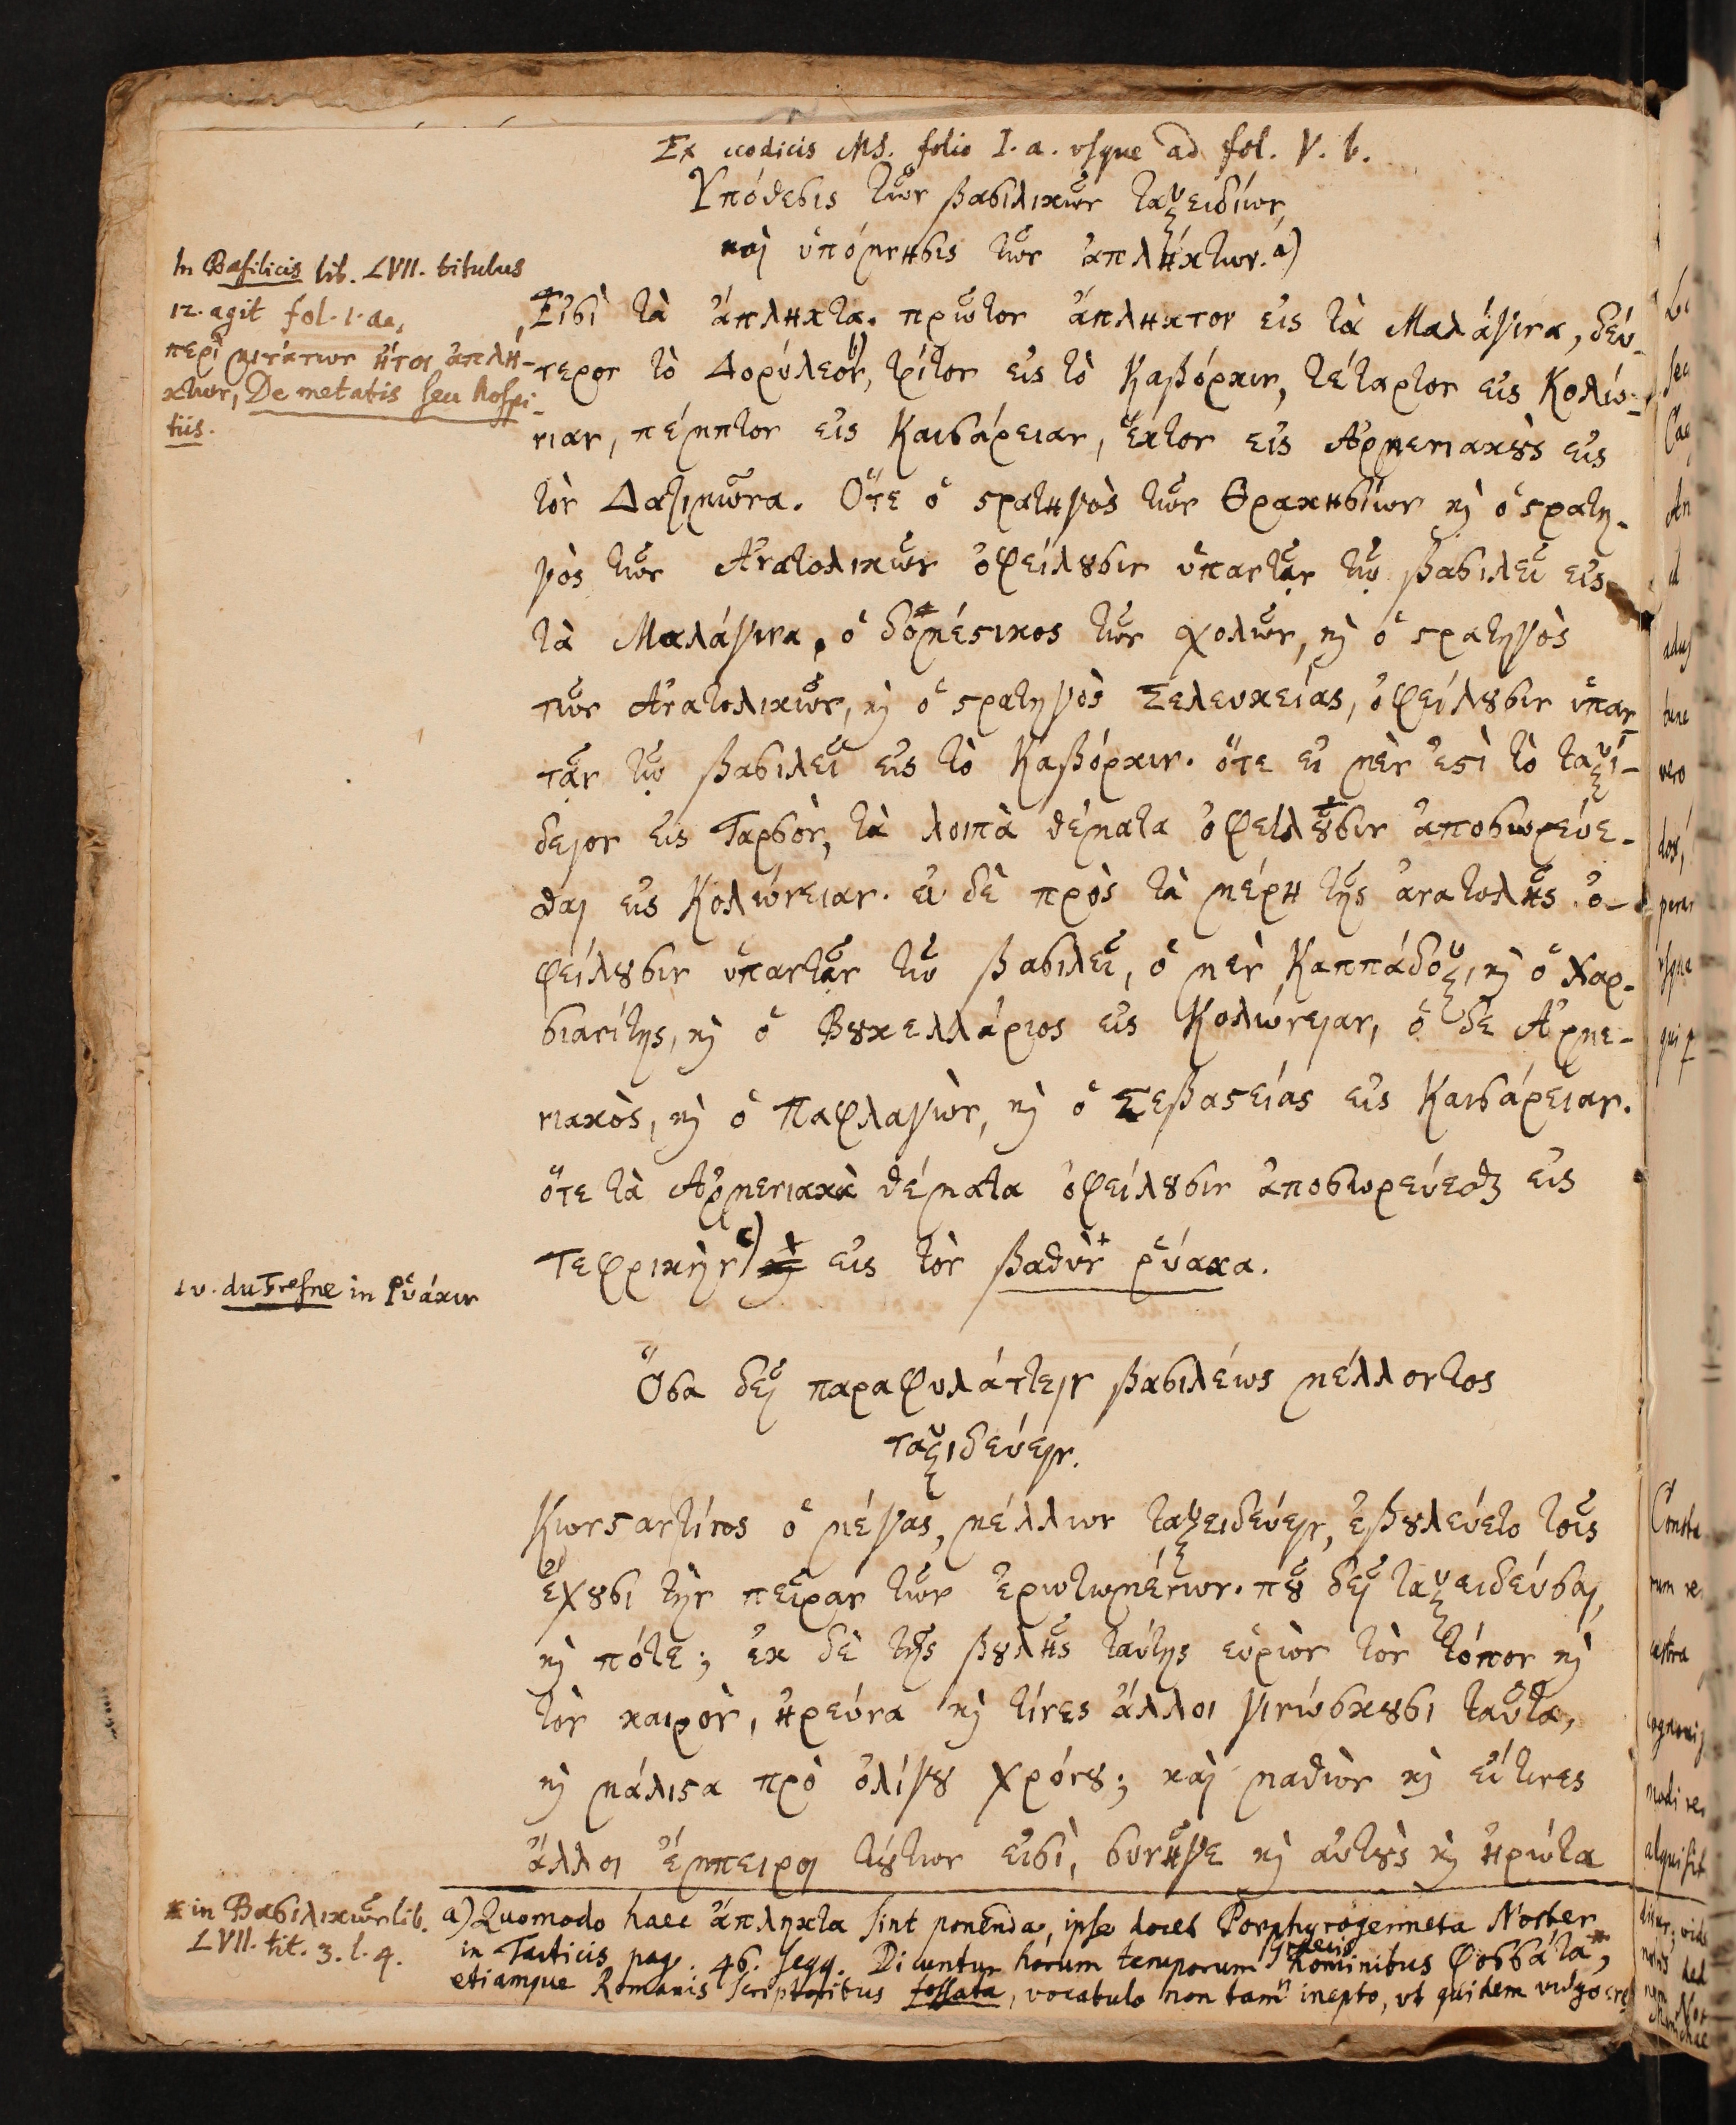 Ex codicis MS. folio I. a. vsque ad fol. V. b.
Ὑπόθεσις τῶν βασιλικῶν ταξειδίων,
καὶ ὑπόμνησις τῶν ἀπλήκτων. a)
In Basilicis lib. LVII. titulus
12. agit fol. 1. aa,
περὶ μιτάτων ἤτοι ἀπλή-
κτων, De metatis seu hospi-
tiis.
Εἰσὶ τὰ ἄπληκτα. πρῶτον ἄπληκτον εἰς τὰ Μαλάγινα, δεύ-
τερον τὸ Δορύλεον, b) τρίτον εἰς τὸ Καβόρκιν, τέταρτον εἰς Κολώ-
νιαν, πέμπτον εἰς Καισάρειαν, ἕκτον εἰς Ἀρμενιακȣ̀ς εἰς
τὸν Δαζιμῶνα. Ὅτε ὁ ϛρατηγὸς τῶν Θρακησίων ϗ ὁ ϛρατη-
γὸς τῶν Ἀνατολικῶν ὀφείλȣσιν ὑπαντᾷν τῷ βασιλεῖ εἰς
τὰ Μαλάγινα, ὁ δομέϛικος τῶν χολῶν, ϗ ὁ ϛρατηγὸς
τῶν Ἀνατολικῶν, ϗ ὁ ϛρατηγὸς Σελευκείας, ὀφείλȣσιν ὑπαν-
τᾷν τῷ βασιλεῖ εἰς τὸ Καβόρκιν. ὅτε εἰ μὲν ἐϛὶ τὸ ταξί-
δειον εἰς Ταρσὸν, τὰ λοιπὰ θέματα ὀφείλȣσιν ἀποσωρεύε-
σθαι εἰς Κολώνειαν. εἰ δὲ πρὸς τὰ μέρη τῆς ἀνατολῆς. ὀ-
φείλȣσιν ὑπαντᾷν τῷ βασιλεῖ, ὁ μὲν Καππάδοξ, ϗ ὁ Χαρ-
σιανίτης, ϗ ὁ Βȣκελλάριος εἰς Κολώνειαν, ὁ δὲ Ἀρμε-
νιακὸς, ϗ ὁ Παφλαγὼν, ϗ ὁ Σεβαϛείας εἰς Καισάρειαν.
ὅτε τὰ Ἀρμενιακὰ θέματα ὀφείλȣσιν ἀποσωρεύεσθαι εἰς
Τεφρικὴν c) ϗ εἰς τὸν βαθὺν + ῥύακα.
+ v. du Fresne in Ῥυάκιν
Ὅσα δεῖ παραφυλάττειν βασιλέως μέλλοντος
ταξιδεύειν.
Κωνϛαντίνος ὁ μέγας, μέλλων ταξειδεύειν, ἐβȣλεύετο τοῖς
ἔχȣσι τὴν πεῖραν τῶν ἐρωτωμένων. πȣ͂ δεῖ ταξειδεύσαι,
ϗ πότε; ἐκ δὲ τῆς βȣλῆς ταύτης εὑρὼν τὸν τόπον ϗ
τὸν καιρὸν, ἠρεύνα ϗ τίνες ἄλλοι γινώσκȣσι ταῦτα,
ϗ μάλιϛα πρὸ ὀλίγȣ χρόνȣ; καὶ μαθὼν ϗ εἴ τινες
ἄλλοι ἔμπειροι τȣ́των εἰσὶ, συνῆγε ϗ αὐτȣ̀ς ϗ ἠρώτα
* in Βασιλικῶν lib.
LVII. tit. 3. l. 4.
a) Quomodo haec ἄπληκτα sint ponenda, ipse docet Porphyrogenneta Noster
in Tacticis pag. 46. seqq. Dicuntur horum temporum Graecis hominibus Φοσσᾶτα, *
etiamque Romanis scriptoribus fossata, vocabulo non tam inepto, vt quidem vulgo